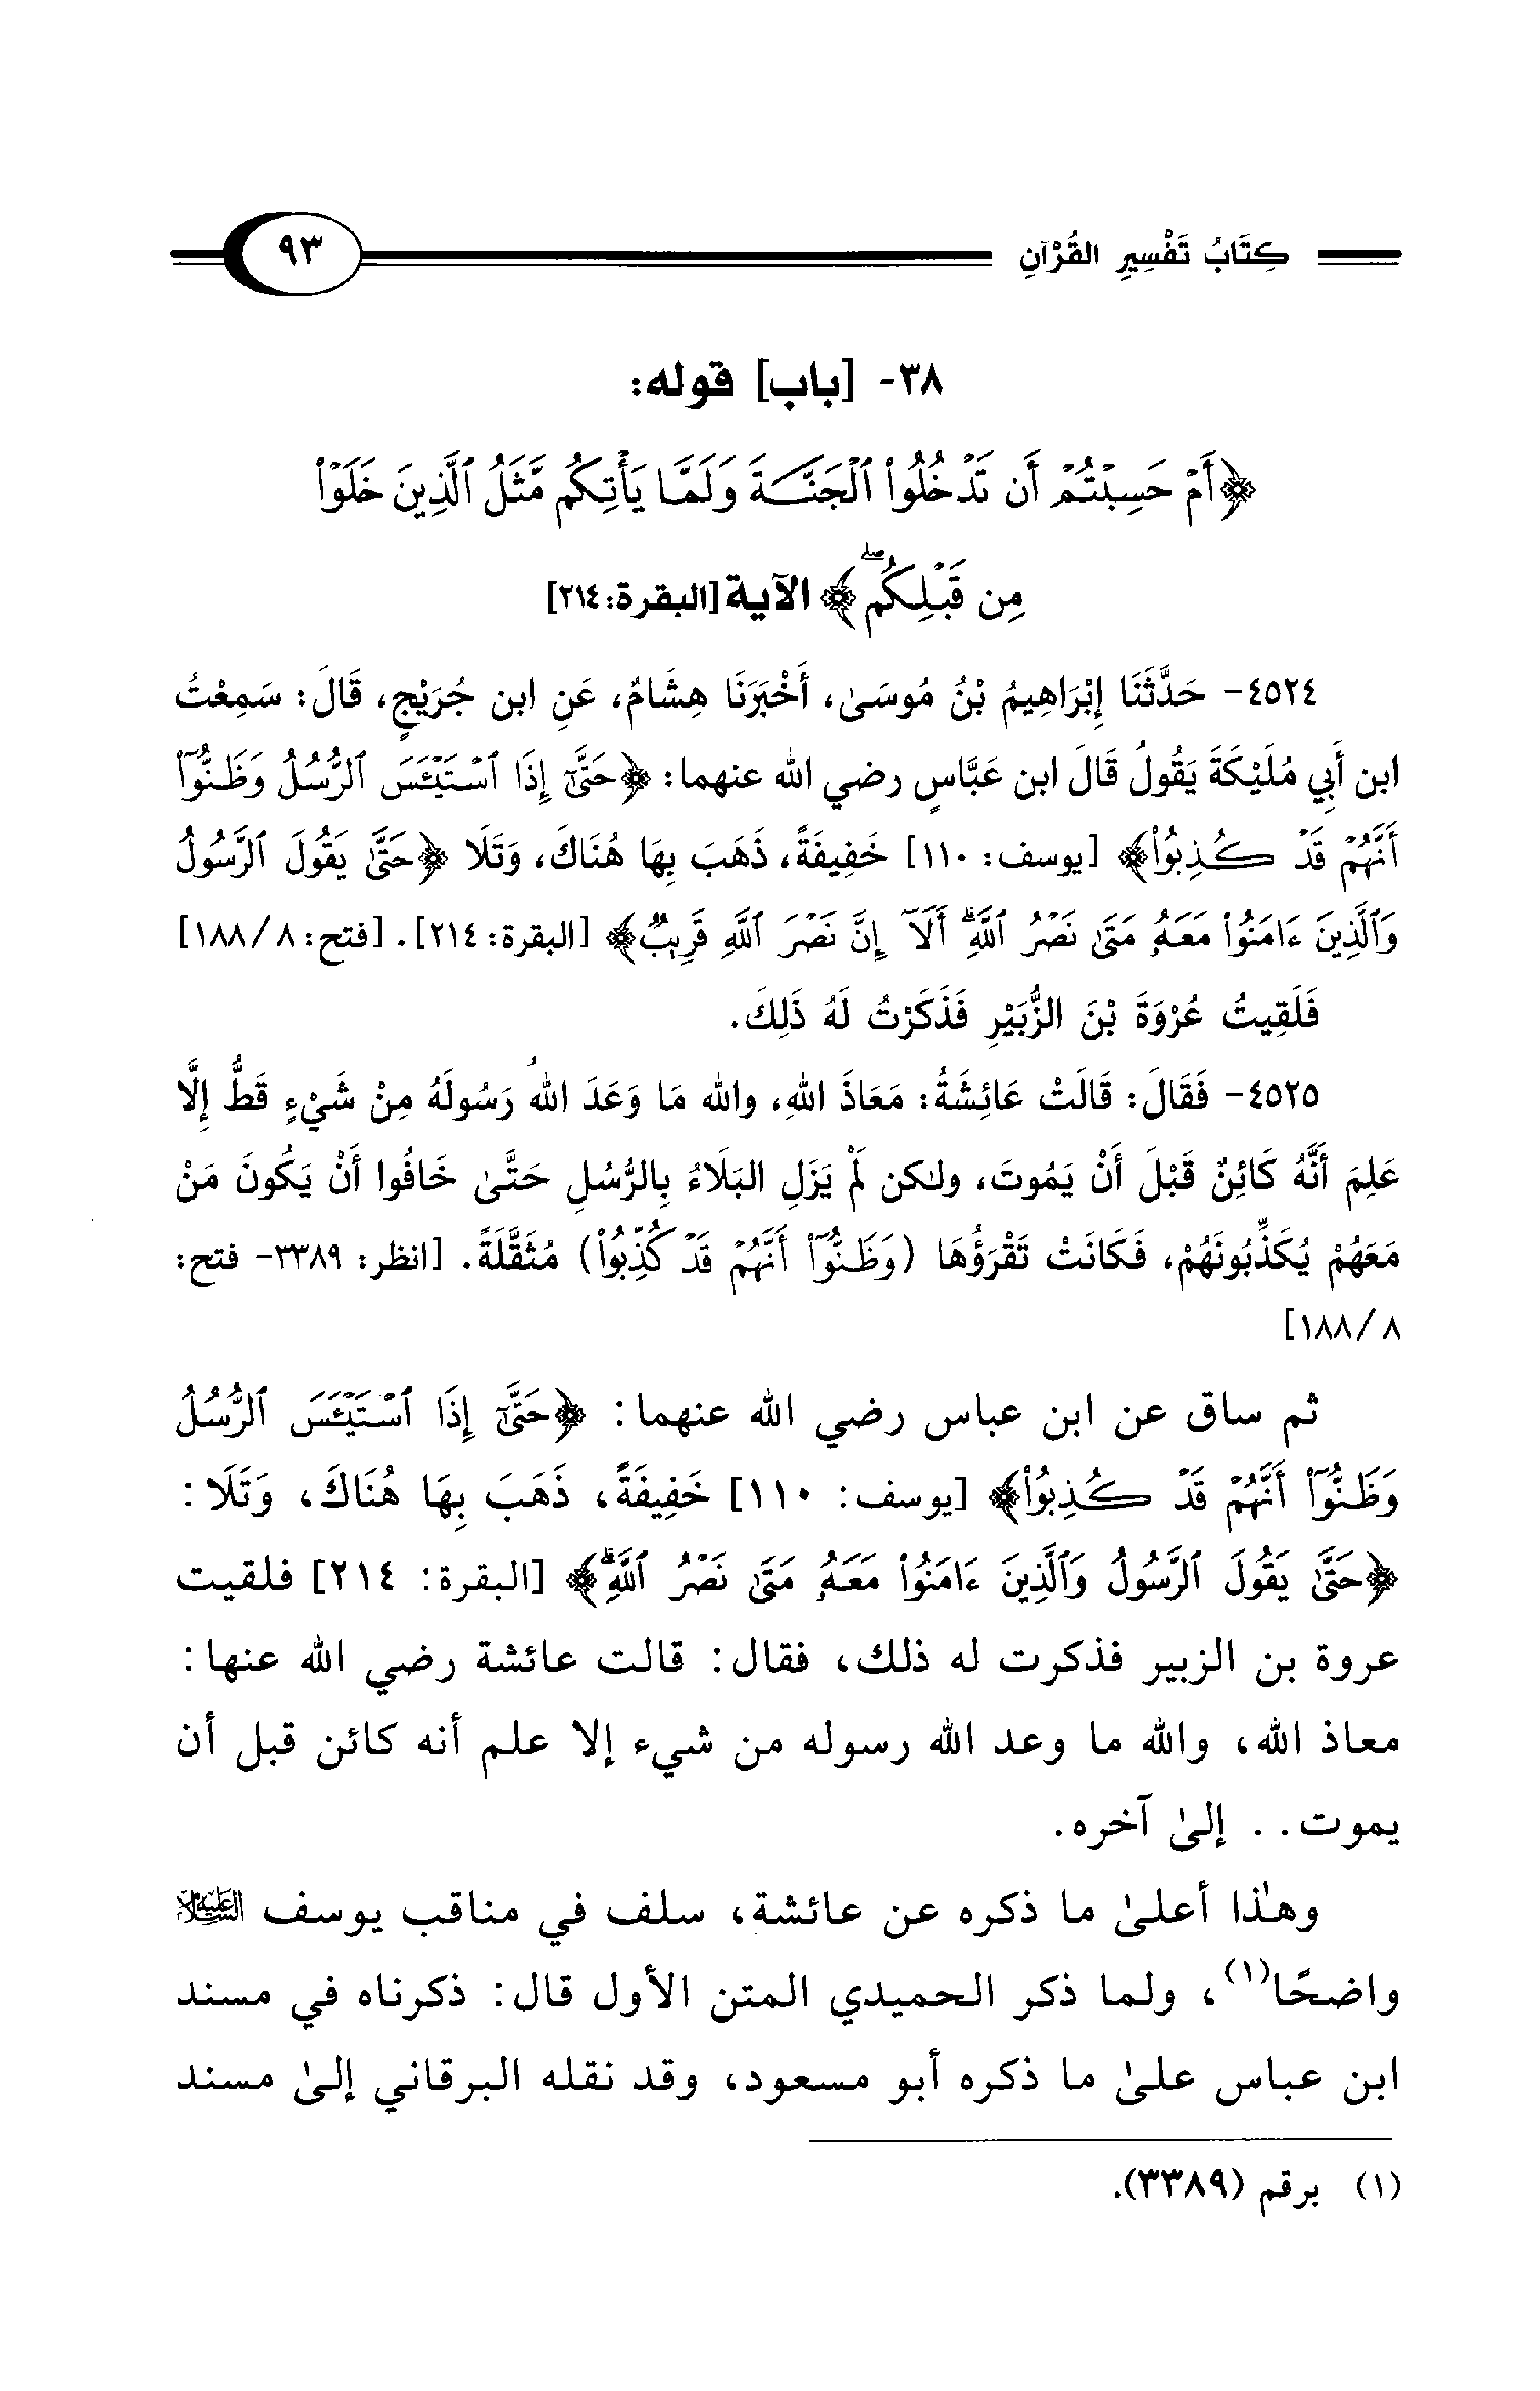 كِتَابُ تَفْسِيرِ القُرْآنِ ٩٣
٣٨- [باب] قوله:
﴿أَمْ حَسِبْتُمْ أَن تَدْخُلُوا۟ ٱلْجَنَّةَ وَلَمَّا يَأْتِكُم مَّثَلُ ٱلَّذِينَ خَلَوْا۟
مِن قَبْلِكُمۖ﴾ الآية [البقرة: ٢١٤]
٤٥٢٤- حَدَّثَنَا إِبْرَاهِيمُ بْنُ مُوسَىٰ، أَخْبَرَنَا هِشَامٌ، عَنِ ابن جُرَيْجٍ، قَالَ: سَمِعْتُ
ابن أَبِي مُلَيْكَةَ يَقُولُ قَالَ ابن عَبَّاسٍ رضي الله عنهما: ﴿حَتَّىٰٓ إِذَا ٱسْتَيْـَٔسَ ٱلرُّسُلُ وَظَنُّوٓا۟
أَنَّهُمْ قَدْ كُذِبُوا۟﴾ [يوسف: ١١٠] خَفِيفَةً، ذَهَبَ بِهَا هُنَاكَ، وَتَلَا ﴿حَتَّىٰ يَقُولَ ٱلرَّسُولُ
وَٱلَّذِينَ ءَامَنُوا۟ مَعَهُۥ مَتَىٰ نَصْرُ ٱللَّهِۗ أَلَآ إِنَّ نَصْرَ ٱللَّهِ قَرِيبٌ﴾ [البقرة: ٢١٤]. [فتح: ٨/ ١٨٨]
فَلَقِيتُ عُرْوَةَ بْنَ الزُّبَيْرِ فَذَكَرْتُ لَهُ ذَلِكَ.
٤٥٢٥- فَقَالَ: قَالَتْ عَائِشَةُ: مَعَاذَ اللهِ، والله مَا وَعَدَ اللهُ رَسُولَهُ مِنْ شَيْءٍ قَطُّ إِلَّا
عَلِمَ أَنَّهُ كَائِنٌ قَبْلَ أَنْ يَمُوتَ، ولكن لَمْ يَزَلِ البَلَاءُ بِالرُّسُلِ حَتَّىٰ خَافُوا أَنْ يَكُونَ مَنْ
مَعَهُمْ يُكَذِّبُونَهُمْ، فَكَانَتْ تَقْرَؤُهَا (وَظَنُّوٓا۟ أَنَّهُمْ قَدْ كُذِّبُوا۟) مُثَقَّلَةً. [انظر: ٣٣٨٩- فتح:
٨/ ١٨٨]
ثم ساق عن ابن عباس رضي الله عنهما: ﴿حَتَّىٰٓ إِذَا ٱسْتَيْـَٔسَ ٱلرُّسُلُ
وَظَنُّوٓا۟ أَنَّهُمْ قَدْ كُذِبُوا۟﴾ [يوسف: ١١٠] خَفِيفَةً، ذَهَبَ بِهَا هُنَاكَ، وَتَلَا:
﴿حَتَّىٰ يَقُولَ ٱلرَّسُولُ وَٱلَّذِينَ ءَامَنُوا۟ مَعَهُۥ مَتَىٰ نَصْرُ ٱللَّهِۗ﴾ [البقرة: ٢١٤] فلقيت
عروة بن الزبير فذكرت له ذلك، فقال: قالت عائشة رضي الله عنها:
معاذ الله، والله ما وعد الله رسوله من شيء إلا علم أنه كائن قبل أن
يموت. . إلىٰ آخره.
وهذا أعلىٰ ما ذكره عن عائشة، سلف في مناقب يوسف عليه السلام
واضحًا(١)، ولما ذكر الحميدي المتن الأول قال: ذكرناه في مسند
ابن عباس علىٰ ما ذكره أبو مسعود، وقد نقله البرقاني إلىٰ مسند
(١) برقم (٣٣٨٩).